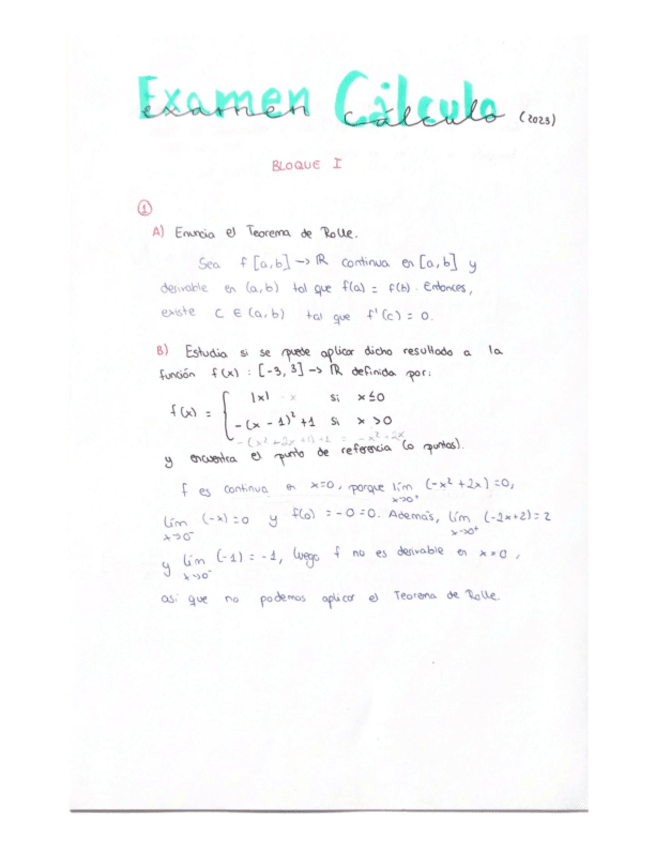 Examen Cálculo
examen cálculo (2023)
BLOQUE I
①
A) Enuncia el Teorema de Rolle.
Sea f [a,b] → ℝ continua en [a,b] y
derivable en (a,b) tal que f(a) = f(b). Entonces,
existe C ∈ (a,b) tal que f'(c) = 0.
B) Estudia si se puede aplicar dicho resultado a la
función f(x) : [-3, 3] → ℝ definida por:
f(x) = { |x| x si x ≤ 0
-(x - 1)² + 1 si x > 0
y encuentra el punto de referencia (o puntos).
f es continua en x=0, porque lím x→0⁺ (-x² + 2x) = 0,
lím x→0⁻ (-x) = 0 y f(0) = -0 = 0. Además, lím x→0⁺ (-2x+2) = 2
y lím x→0⁻ (-1) = -1, luego f no es derivable en x = 0,
así que no podemos aplicar el Teorema de Rolle.